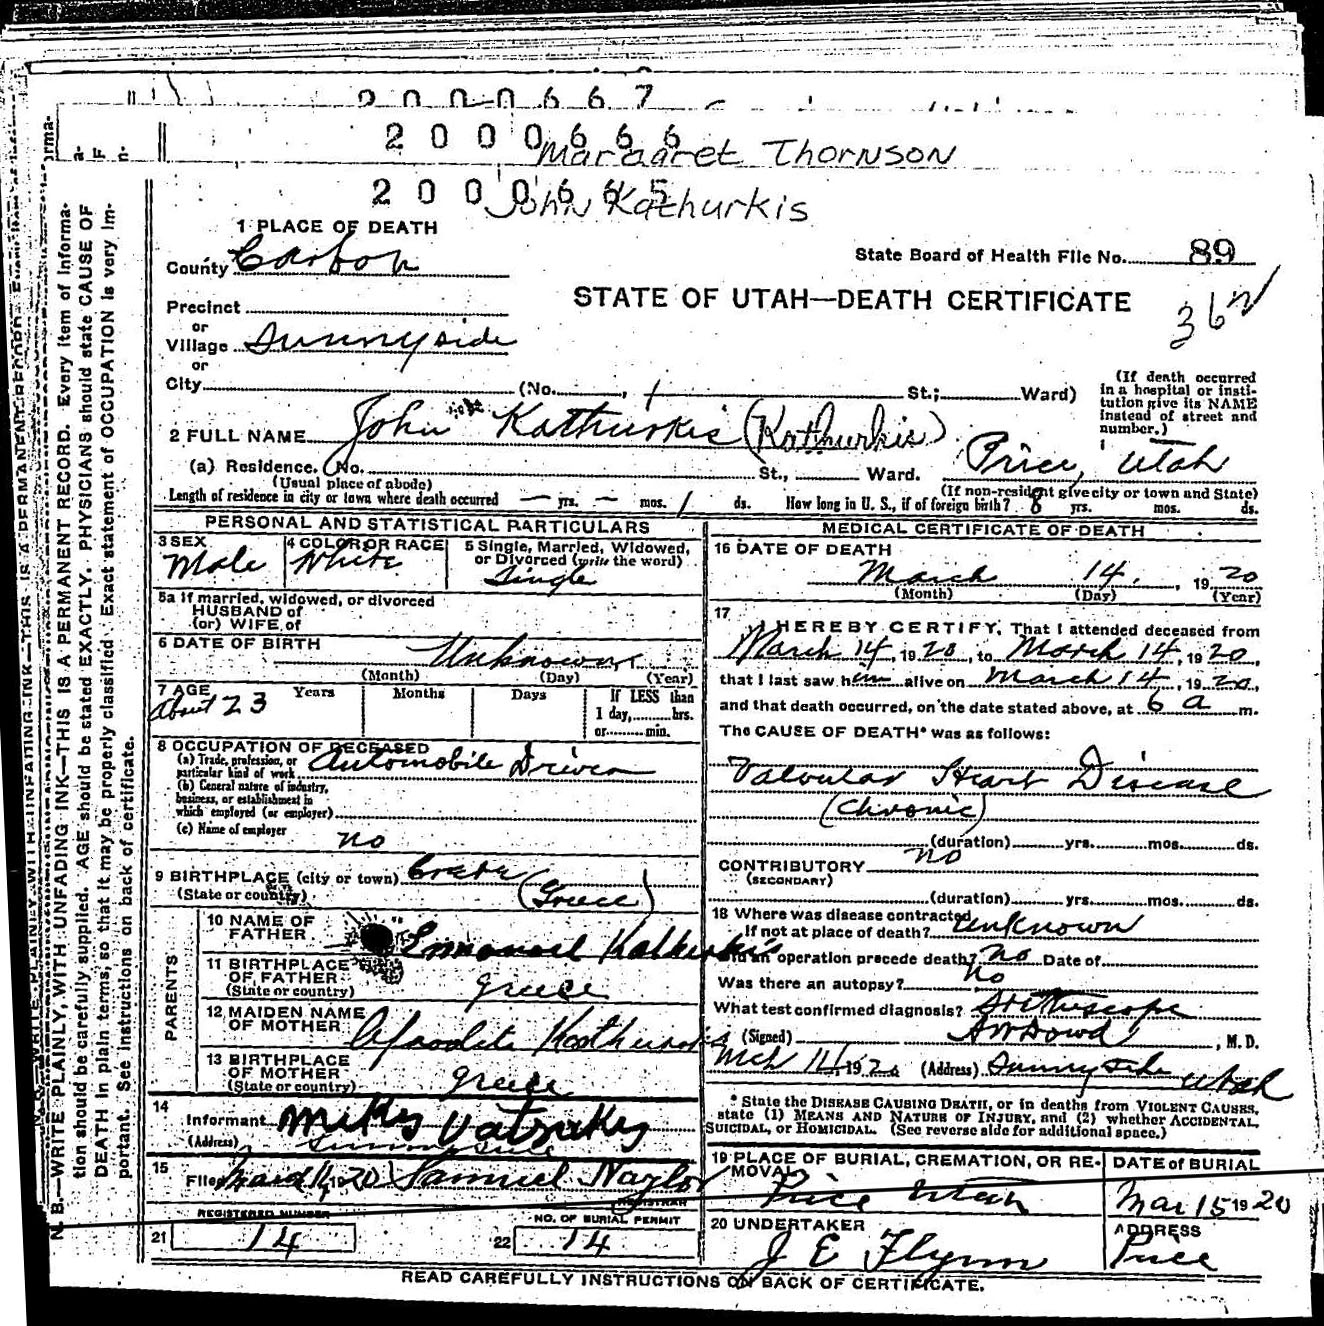 2 0 0 0 6 6 7
2 0 0 0 6 6 6
Margaret Thornson
2 0 0 0 6 6 5
John Kathurkis
1 PLACE OF DEATH
County Carbon
State Board of Health File No. 89
STATE OF UTAH—DEATH CERTIFICATE
36
Precinct
or
Village Sunnyside
or
City (No. , St.; Ward)
(If death occurred in a hospital or institution give its NAME instead of street and number.)
2 FULL NAME John Kathurkis (Kathurkis)
(a) Residence. No. St., Ward. Price, Utah
(Usual place of abode) (If non-resident give city or town and State)
Length of residence in city or town where death occurred — yrs. — mos. 1 ds. How long in U. S., if of foreign birth? 8 yrs. mos. ds.
PERSONAL AND STATISTICAL PARTICULARS
3 SEX Male
4 COLOR OR RACE White
5 Single, Married, Widowed, or Divorced (write the word) Single
5a If married, widowed, or divorced
HUSBAND of
(or) WIFE of
6 DATE OF BIRTH Unknown
(Month) (Day) (Year)
7 AGE Years Months Days If LESS than 1 day, hrs. or min.
About 23
8 OCCUPATION OF DECEASED
(a) Trade, profession, or particular kind of work Automobile Driver
(b) General nature of industry, business, or establishment in which employed (or employer)
(c) Name of employer no
9 BIRTHPLACE (city or town) Crete
(State or country) (Greece)
PARENTS
10 NAME OF FATHER Emmanuel Kathurkis
11 BIRTHPLACE OF FATHER (State or country) Greece
12 MAIDEN NAME OF MOTHER Afrodete Kathurkis
13 BIRTHPLACE OF MOTHER (State or country) Greece
14
Informant Mike Vatsakes
(Address) Sunnyside
15 Filed March 14 1920 Samuel Naylor
REGISTRAR
REGISTERED NUMBER
21 14
NO. OF BURIAL PERMIT
22 14
MEDICAL CERTIFICATE OF DEATH
16 DATE OF DEATH
March 14, 1920
(Month) (Day) (Year)
17
I HEREBY CERTIFY, That I attended deceased from
March 14, 1920, to March 14, 1920,
that I last saw him alive on March 14, 1920,
and that death occurred, on the date stated above, at 6 a m.
The CAUSE OF DEATH* was as follows:
Valvular Heart Disease
(Chronic)
(duration) yrs. mos. ds.
CONTRIBUTORY no
(SECONDARY)
(duration) yrs. mos. ds.
18 Where was disease contracted
If not at place of death? Unknown
Did an operation precede death? No Date of
Was there an autopsy? No
What test confirmed diagnosis? Stethescope
(Signed) A W Dowd, M. D.
Mch 14, 1920 (Address) Sunnyside Utah
* State the DISEASE CAUSING DEATH, or in deaths from VIOLENT CAUSES,
state (1) MEANS AND NATURE OF INJURY, and (2) whether ACCIDENTAL,
SUICIDAL, or HOMICIDAL. (See reverse side for additional space.)
19 PLACE OF BURIAL, CREMATION, OR REMOVAL
Price Utah
DATE of BURIAL
Mar 15 1920
20 UNDERTAKER
J E Flynn
ADDRESS
Price
READ CAREFULLY INSTRUCTIONS ON BACK OF CERTIFICATE.
N. B.—WRITE PLAINLY, WITH UNFADING INK—THIS IS A PERMANENT RECORD. Every item of Informa-
tion should be carefully supplied. AGE should be stated EXACTLY. PHYSICIANS should state CAUSE OF
DEATH in plain terms, so that it may be properly classified. Exact statement of OCCUPATION is very im-
portant. See instructions on back of certificate.